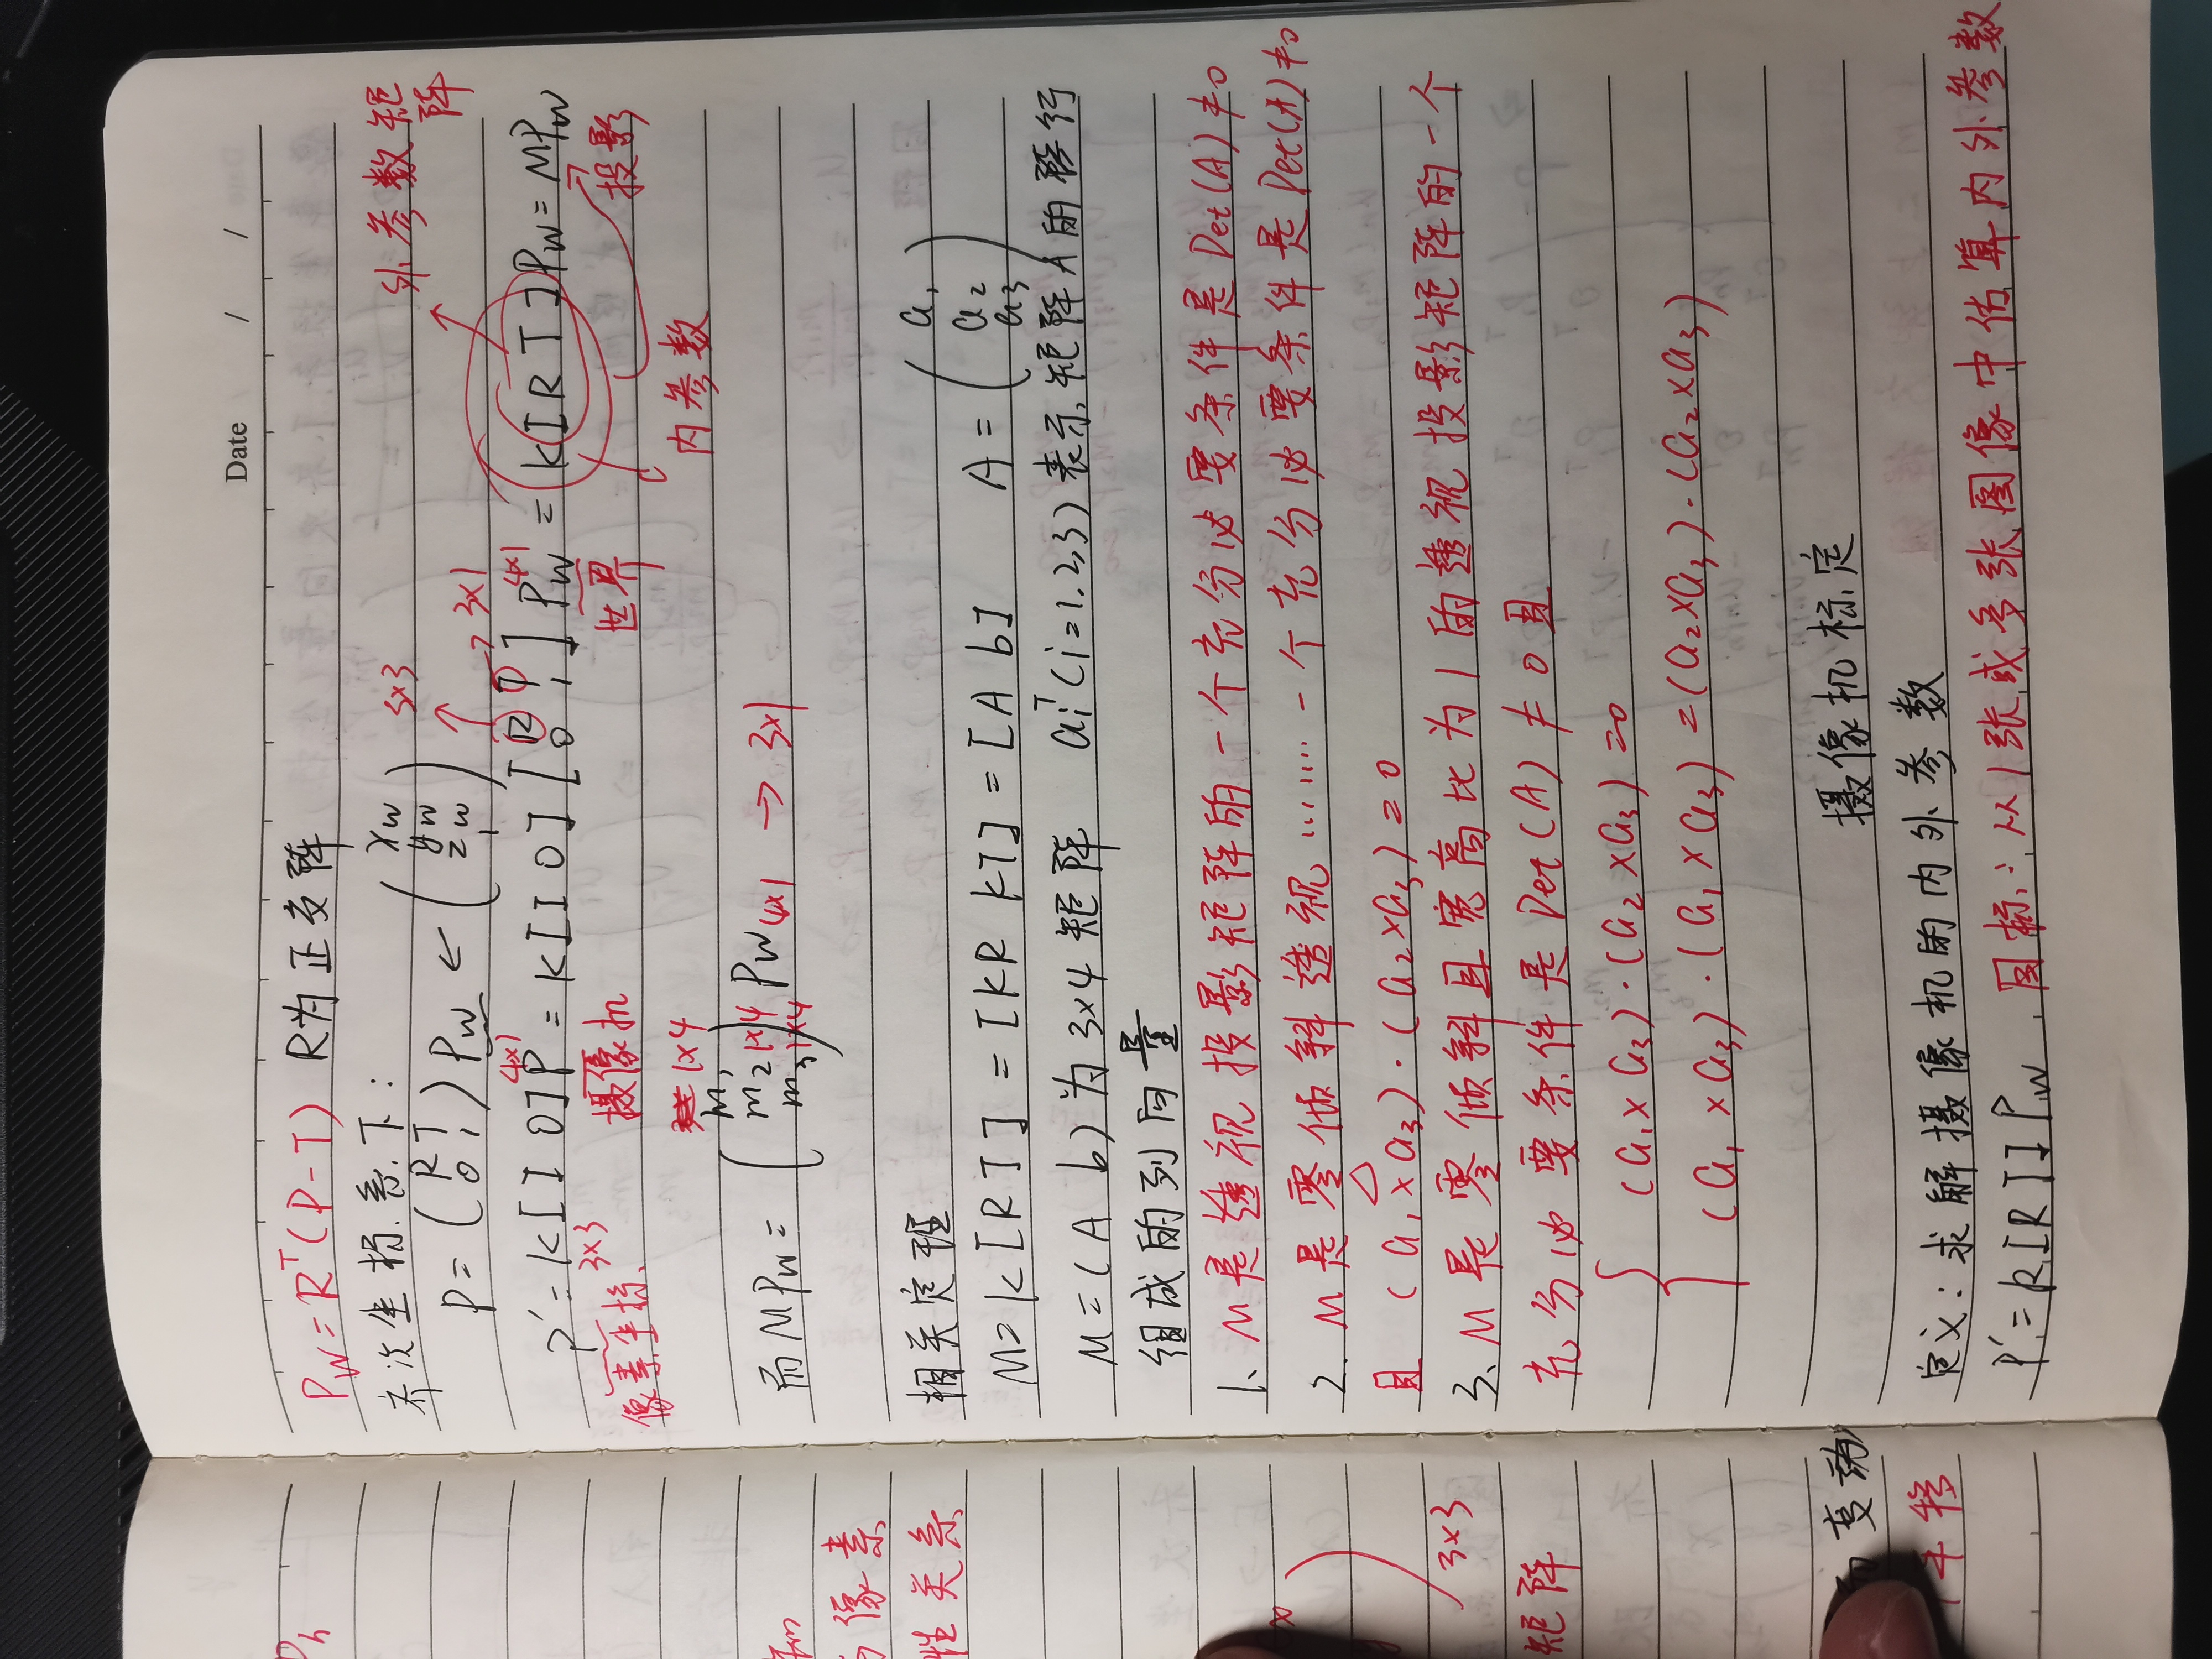 Date / /
P_W = R^T(P-T) R为正交阵
齐次坐标系下:
外参数矩阵
P = (R T; 0 1) P_W ← (x_w y_w z_w 1) 3x3
3x1
P' = K[I 0]P = K[I 0][R T; 0 1]P_W = K[R T]P_W = MP_W
3x3 4x1 4x1
像素坐标 摄像机 世界 投影
内参数
而 MP_W = (m₁ m₂ m₃) P_W 4x1 → 3x1
1x4 1x4 1x4
相关定理
M = K[R T] = [KR KT] = [A b] A = (a₁ a₂ a₃)
M = (A b) 为3x4矩阵 a_i^T (i=1.2.3) 表示矩阵A的
组成的列向量
1、M是透视投影矩阵的一个充份必要条件是Det(A)≠0
2. M是零倾斜透视………一个充份必要条件是Det(A)≠0
且 (a₁×a₃)·(a₂×a₃)=0
3、M是零倾斜且宽高比为1的透视投影矩阵的一个
充份必要条件是Det(A)≠0且
{ (a₁×a₃)·(a₂×a₃)=0
(a₁×a₃)·(a₁×a₃)=(a₂×a₃)·(a₂×a₃)
摄像机标定
定义:求解摄像机的内外参数
P' = K[R T]P_W 目标:从1张或多张图像中估算内外参数
P_h
像素
性关系
3x3
矩阵